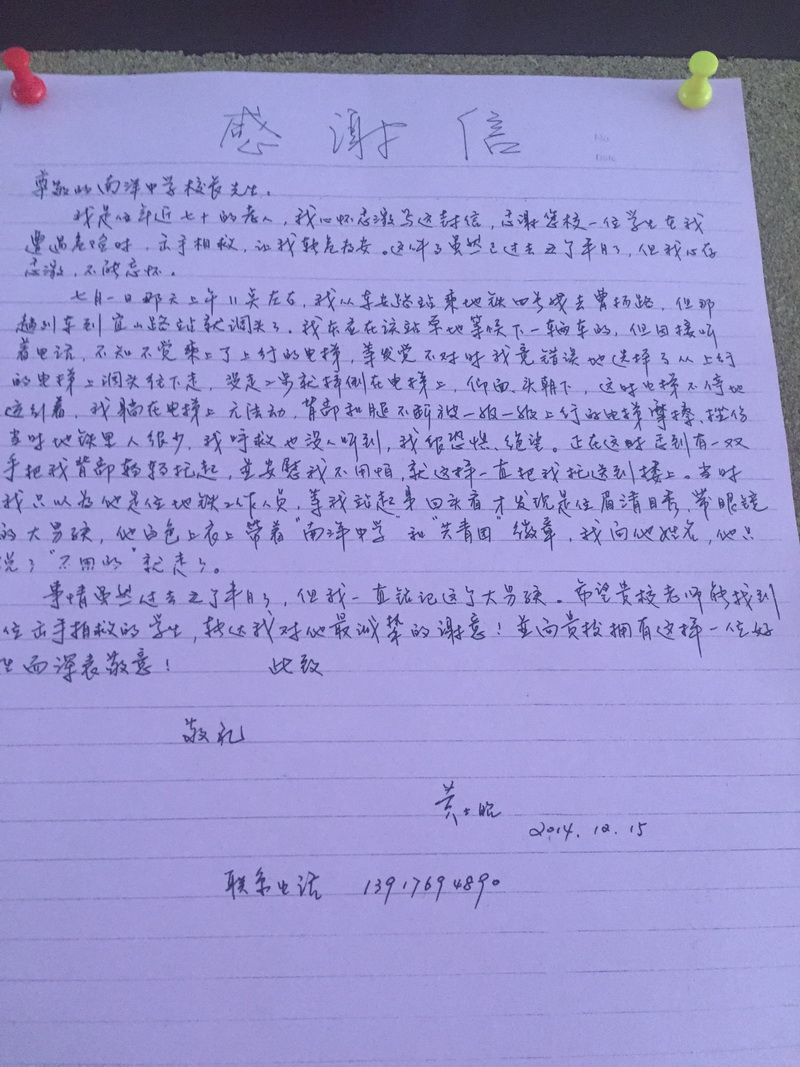 感谢信
No
Date
尊敬的南洋中学校长先生:
我是位年近七十的老人,我心怀感激写这封信,感谢您校一位学生在我
遭遇危险时,出手相救,让我转危为安。这件事虽然已过去五个半月了,但我心存
感激,不能忘怀。
七月一日那天上午11点左右,我从东安路站乘地铁四号线去曹杨路,但那
趟列车到宜山路站就调头了。我本应在该站原地等候下一辆车的,但因接听
着电话,不知不觉乘上了上行的电梯,等发觉不对时我竟错误地选择了从上行
的电梯上调头往下走,没走二步就摔倒在电梯上,仰面、头朝下,这时电梯不停地
运行着,我躺在电梯上无法动,背部和腿不断被一级一级上行的电梯摩擦、挫伤
当时地铁里人很少,我呼救也没人听到,我很恐惧、绝望。正在这时感到有一双
手把我背部轻轻托起,並安慰我不用怕,就这样一直把我托送到楼上。当时
我只以为他是位地铁工作人员,等我站起身回头看才发现是位眉清目秀、带眼镜
的大男孩,他白色上衣上带着“南洋中学”和“共青团”徽章,我问他姓名,他只
说了“不用的”就走了。
事情虽然过去五个半月了,但我一直铭记这个大男孩。希望贵校老师能找到
位出手相救的学生,转达我对他最诚挚的谢意!並向贵校拥有这样一位好
生而深表敬意! 此致
敬礼
黄
2014.12.15
联系电话 13917694890